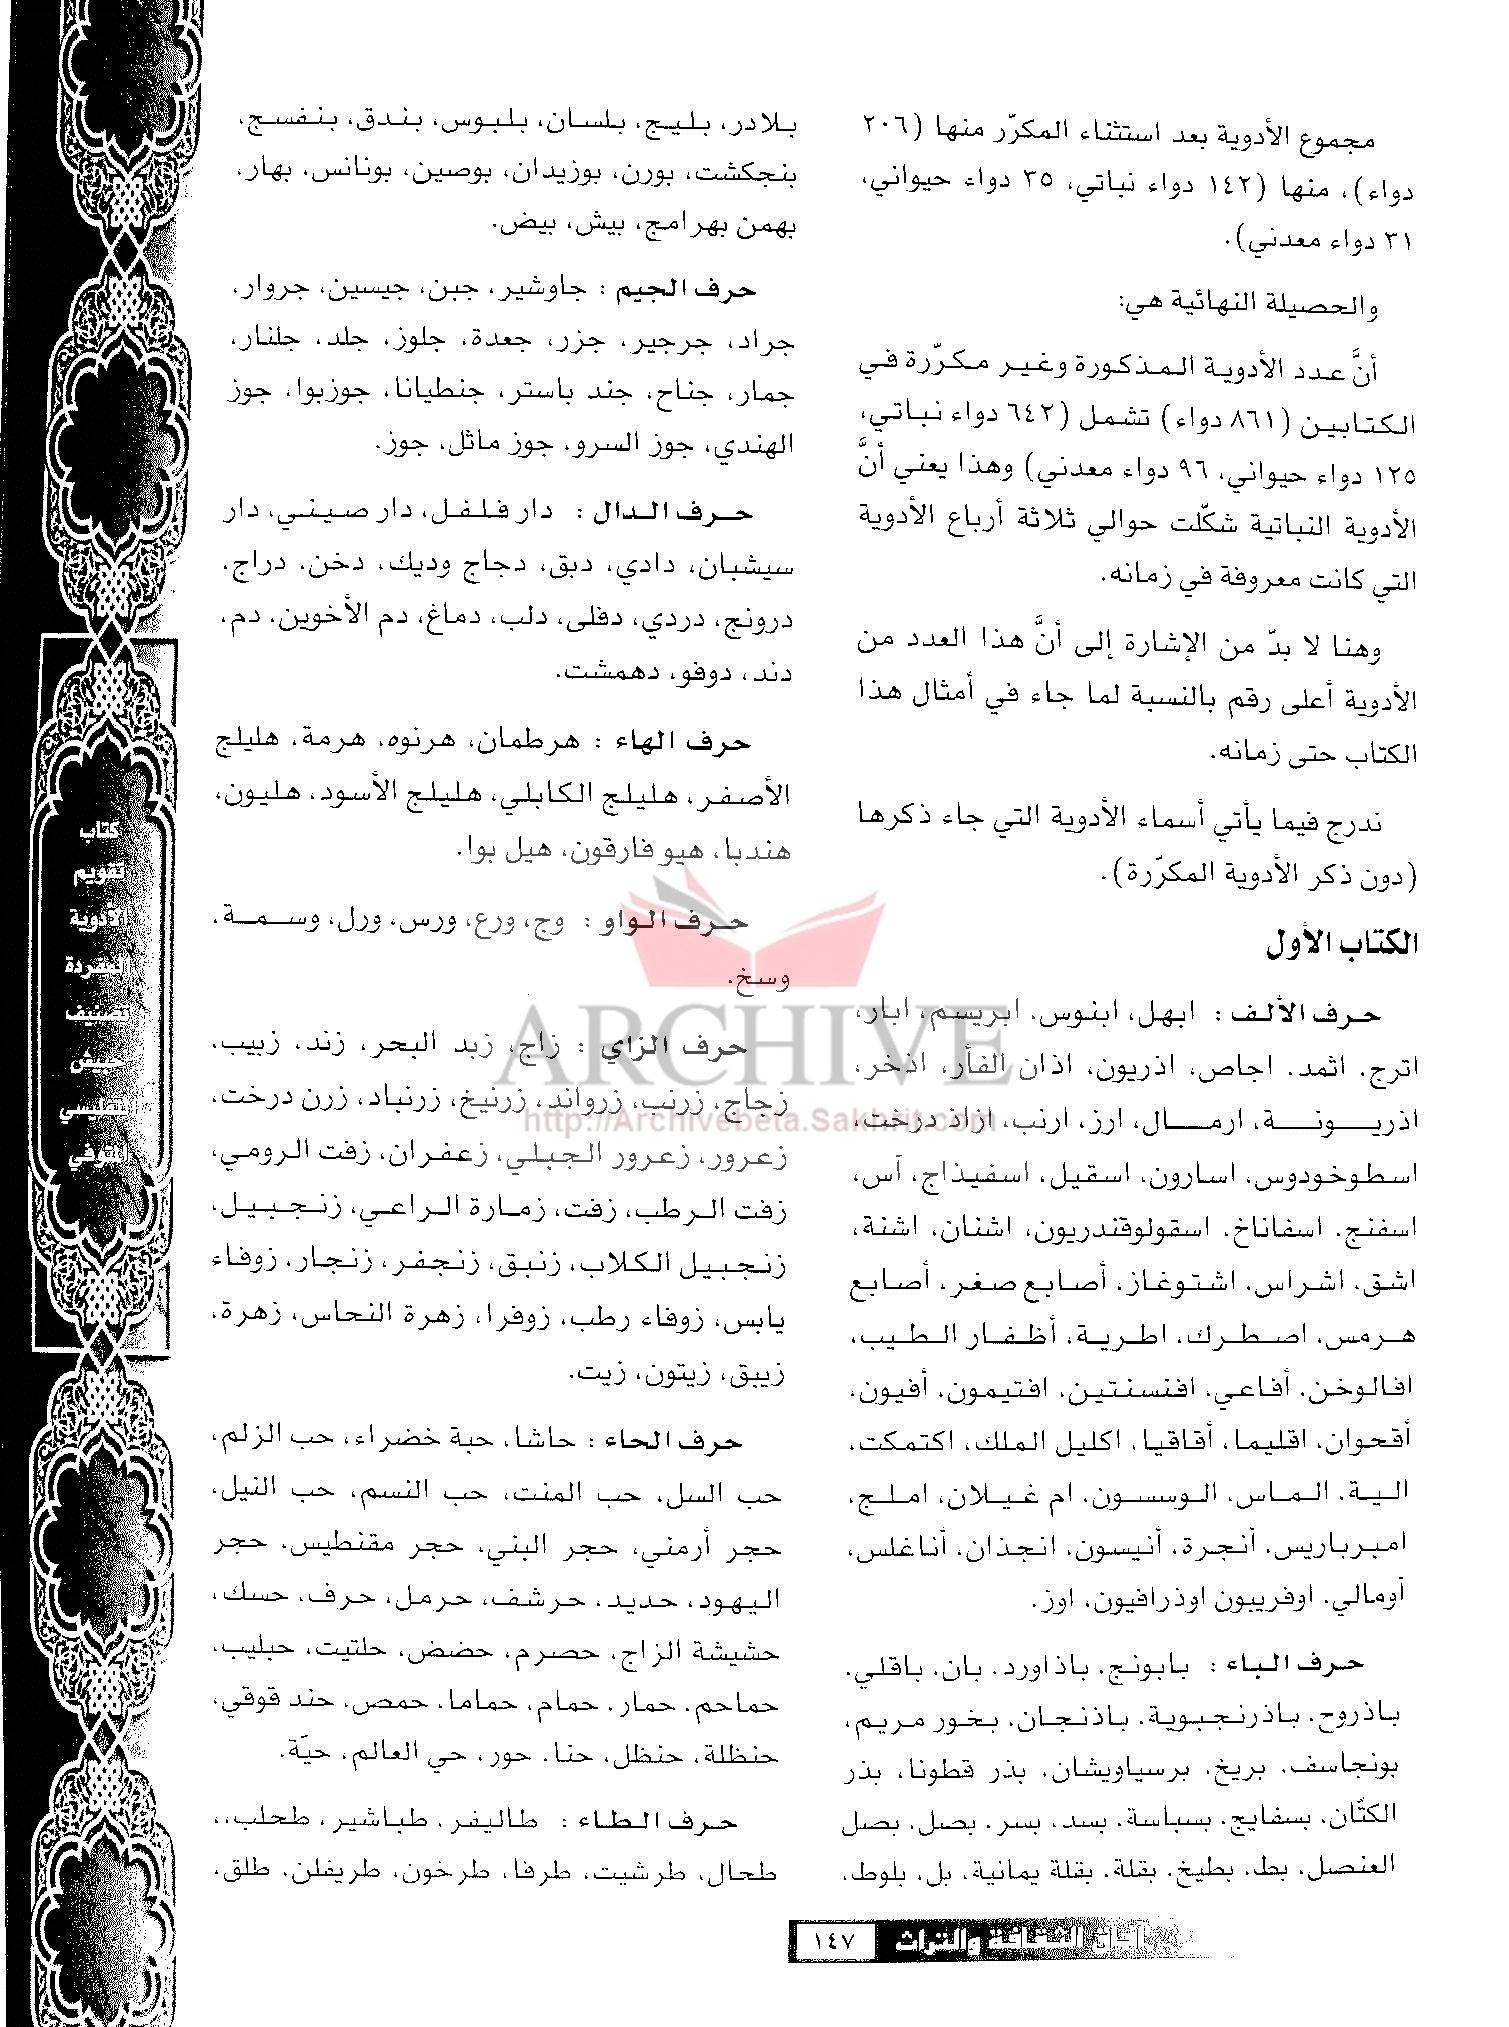 مجموع الأدوية بعد استثناء المكرّر منها (٢٠٦
دواء)، منها (١٤٢ دواء نباتي، ٣٥ دواء حيواني،
٣١ دواء معدني).
والحصيلة النهائية هي:
أنَّ عدد الأدوية المذكورة وغير مكرّرة في
الكتابين (٨٦١ دواء) تشمل (٦٤٢ دواء نباتي،
١٢٥ دواء حيواني، ٩٦ دواء معدني) وهذا يعني أنَّ
الأدوية النباتية شكّلت حوالي ثلاثة أرباع الأدوية
التي كانت معروفة في زمانه.
وهنا لا بدّ من الإشارة إلى أنَّ هذا العدد من
الأدوية أعلى رقم بالنسبة لما جاء في أمثال هذا
الكتاب حتى زمانه.
ندرج فيما يأتي أسماء الأدوية التي جاء ذكرها
(دون ذكر الأدوية المكرّرة).
الكتاب الأول
حرف الألف : ابهل، ابنوس، ابريسم، ابار،
اترج، اثمد، اجاص، اذريون، اذان الفأر، اذخر،
اذريونة، ارمال، ارز، ارنب، ازاد درخت،
اسطوخودوس، اسارون، اسقيل، اسفيذاج، آس،
اسفنج، اسفاناخ، اسقولوقندريون، اشنان، اشنة،
اشق، اشراس، اشتوغاز، أصابع صغر، أصابع
هرمس، اصطرك، اطرية، أظفار الطيب،
افالوخن، أفاعي، افنسنتين، افتيمون، أفيون،
أقحوان، اقليما، أقاقيا، اكليل الملك، اكتمكت،
الية، الماس، الوسسون، ام غيلان، املج،
امبرباريس، أنجرة، أنيسون، انجذان، أناغلس،
آومالي، اوفريبون اوذرافيون، اوز.
حرف الباء : بابونج، باذاورد، بان، باقلي،
باذروح، باذرنجبوية، باذنجان، بخور مريم،
بونجاسف، بريخ، برسياويشان، بذر قطونا، بذر
الكتّان، بسفايج، بسباسة، بسد، بسر، بصل، بصل
العنصل، بط، بطيخ، بقلة، بقلة يمانية، بل، بلوط،
بلادر، بليج، بلسان، بلبوس، بندق، بنفسج،
بنجكشت، بورن، بوزيدان، بوصين، بونانس، بهار،
بهمن بهرامج، بيش، بيض.
حرف الجيم : جاوشير، جبن، جيسين، جروار،
جراد، جرجير، جزر، جعدة، جلوز، جلد، جلنار،
جمار، جناح، جند باستر، جنطيانا، جوزبوا، جوز
الهندي، جوز السرو، جوز ماثل، جوز.
حرف الدال : دار فلفل، دار صيني، دار
سيشبان، دادي، دبق، دجاج وديك، دخن، دراج،
درونج، دردي، دفلى، دلب، دماغ، دم الأخوين، دم،
دند، دوفو، دهمشت.
حرف الهاء : هرطمان، هرنوه، هرمة، هليلج
الأصفر، هليلج الكابلي، هليلج الأسود، هليون،
هندبا، هيو فارقون، هيل بوا.
حرف الواو : وج، ورع، ورس، ورل، وسمة،
وسخ.
حرف الزاي : زاج، زبد البحر، زند، زبيب،
زجاج، زرنب، زرواند، زرنيخ، زرنباد، زرن درخت،
زعرور، زعرور الجبلي، زعفران، زفت الرومي،
زفت الرطب، زفت، زمارة الراعي، زنجبيل،
زنجبيل الكلاب، زنبق، زنجفر، زنجار، زوفاء
يابس، زوفاء رطب، زوفرا، زهرة النحاس، زهرة،
زيبق، زيتون، زيت.
حرف الحاء : حاشا، حبة خضراء، حب الزلم،
حب السل، حب المنت، حب النسم، حب النيل،
حجر أرمني، حجر البني، حجر مقنطيس، حجر
اليهود، حديد، حرشف، حرمل، حرف، حسك،
حشيشة الزاج، حصرم، حضض، حلتيت، حبليب،
حماحم، حمار، حمام، حماما، حمص، حند قوقي،
حنظلة، حنظل، حنا، حور، حي العالم، حيّة.
حرف الطاء : طاليفر، طباشير، طحلب،،
طحال، طرشيت، طرفا، طرخون، طريفلن، طلق،
كتاب
تقويم
الأدوية
المفردة
تصنيف
حبيش
التفليسي
المتوفى
ARCHIVE
http://Archivebeta.Sakhrit.com
آفاق الثقافة والتراث
١٤٧